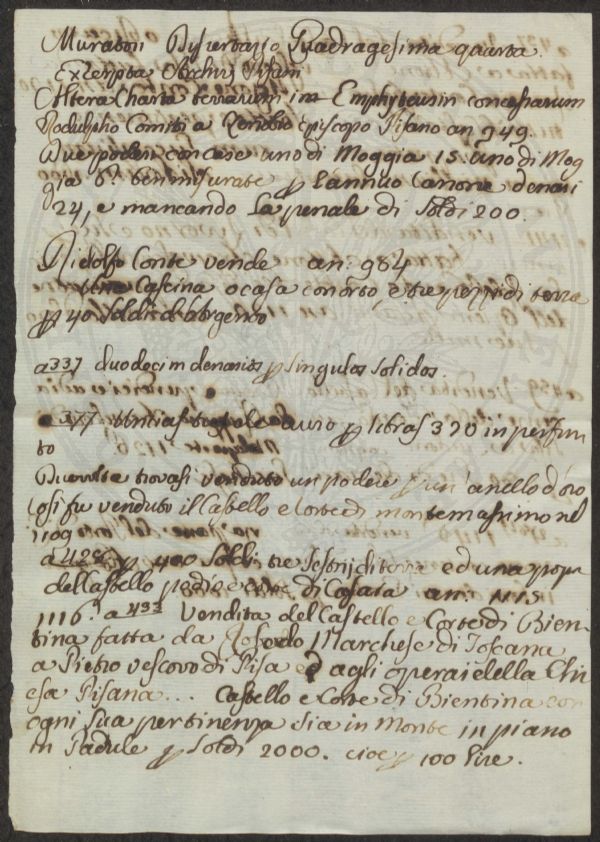 Muratori Dissertazio Quadragesima quarta.
Excerpta Archivi Pisani
Altera Charta terrarum in Emphyteusin concessarum
Rodulpho Comiti a Zenobio Episcopo Pisano an 949.
Due poderi concase uno di Moggia 15. uno di Mog
gia 6. ben misurate p l'annuo Canone denari
24, e mancando La penale di Soldi 200.
Ridolfo Conte vende an: 984
una Cascina o casa con orto, e tre pezzi di terra
p 40 Soldi d'Argento
a 337 duodecim denarios p singulos solidos.
a 377 auro p libras 320 in perfini
to
Due volte trovasi venduto un podere p un' anello d'oro
Così fu venduto il Castello e Corte di montemassimo nel
1109
a 428 p 400 Soldi tre Sestorj di terra ed una
del Castello podio e corte di Casara an: 1115
1116. a 433 Vendita del Castello e Corte di Bien
tina fatta da Marchese di Toscana
a Pietro vescovo di Pisa ed agli operai della Chi
esa Pisana... Castello e Corte di Bientina con
ogni sua pertinenza sia in Monte in piano
in Padule p Soldi 2000. cioe p 100 lire.